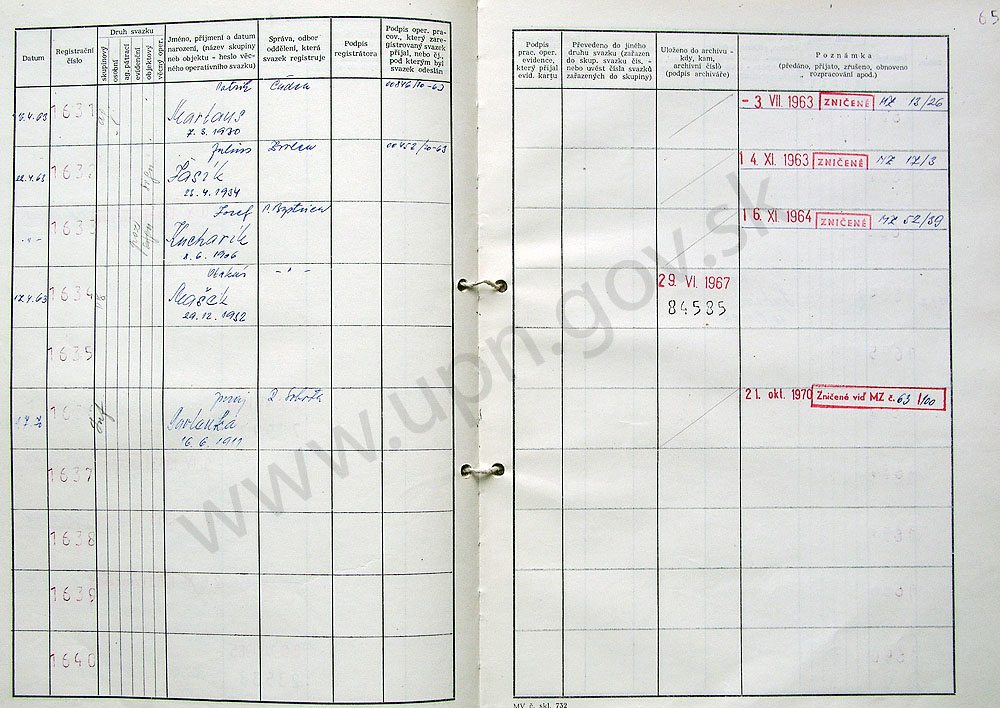 65
Datum
Registrační číslo
Druh svazku
skupinový
osobní
ag. pátrací
evidenční
objektový
věcný oper.
Jméno, příjmení a datum
narození, (název skupiny
neb objektu - heslo věc-
ného operativního svazku)
Správa, odbor
oddělení, která
svazek registruje
Podpis
registrátora
Podpis oper. pra-
cov., který zare-
gistrovaný svazek
přijal, nebo čj.
pod kterým byl
svazek odeslán
Podpis
prac. oper.
evidence,
který přijal
evid. kartu
Převedeno do jiného
druhu svazku (zařazen
do skup. svazku čís. -
nebo uvést čísla svazků
zařazených do skupiny)
Uloženo do archivu -
kdy, kam,
archivní číslo
(podpis archiváře)
Poznámka
(předáno, přijato, zrušeno, obnoveno
rozpracování apod.)
1631
Čadca
7.3.1930
- 3. VII. 1963 ZNIČENÉ MZ 13/26
22.4.63
1632
Július
23.4.1934
14. XI. 1963 ZNIČENÉ MZ 17/3
1633
Jozef
Kucharik
8.6.1906
P. Bystrica
16. XI 1964 ZNIČENÉ MZ 52/39
17.4.63
1634
Mašek
29.12.1932
- " -
29. VI. 1967
84585
1635
Juraj
16.6.1911
21. okt. 1970 Zničené viď MZ č. 63 1/100
1637
1638
1639
1640
MV č. skl. 732
www.upn.gov.sk